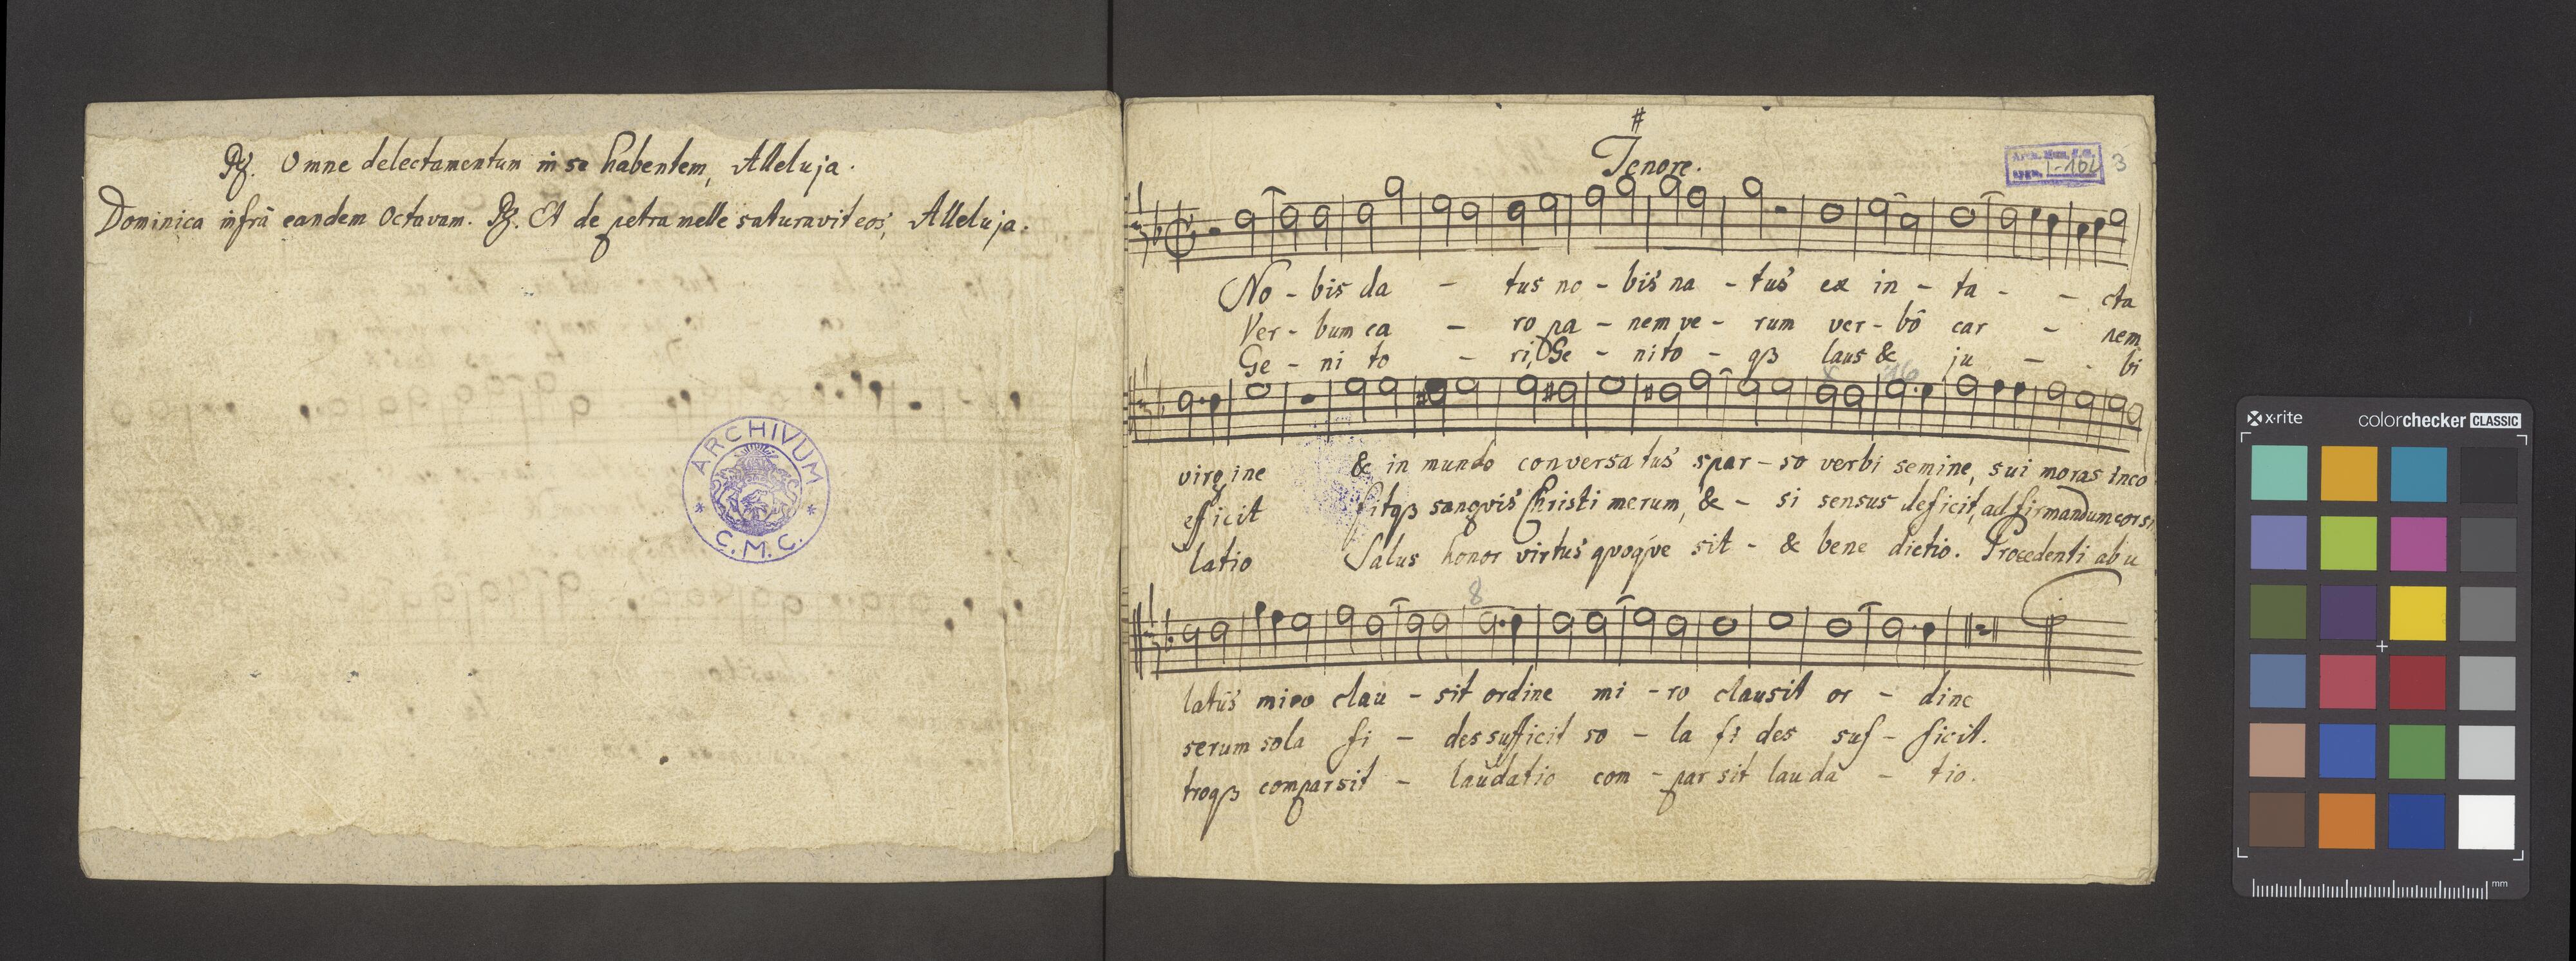 ℟. Omne delectamentum in se habentem, Alleluja.
Dominica infrà eandem Octavam. ℟. Et de petra melle saturavit eos, Alleluja.
ARCHIVUM
* C.M.C. *
#
Tenore.
Arch. Mus.
I-104
3
No - bis da - tus no - bis na - tus ex in - ta - - cta
Ver - bum ca - ro pa - nem ve - rum ver - bô car - nem
Ge - ni to - ri, Ge - nito - qꝫ laus & ju - - bi
virgine & in mundo conversatus spar - so verbi semine, sui moras inco
efficit fitqꝫ sangvis Christi merum, & - si sensus deficit, ad firmandum cor si
latio Salus honor virtus qvoqve sit - & bene dictio. Procedenti ab u
8
latus miro clau - sit ordine mi - ro clausit or - dine
serum sola fi - des sufficit so - la fi des suf - ficit.
troqꝫ compar sit - laudatio com - par sit lauda - tio.
x-rite
colorchecker CLASSIC
mm